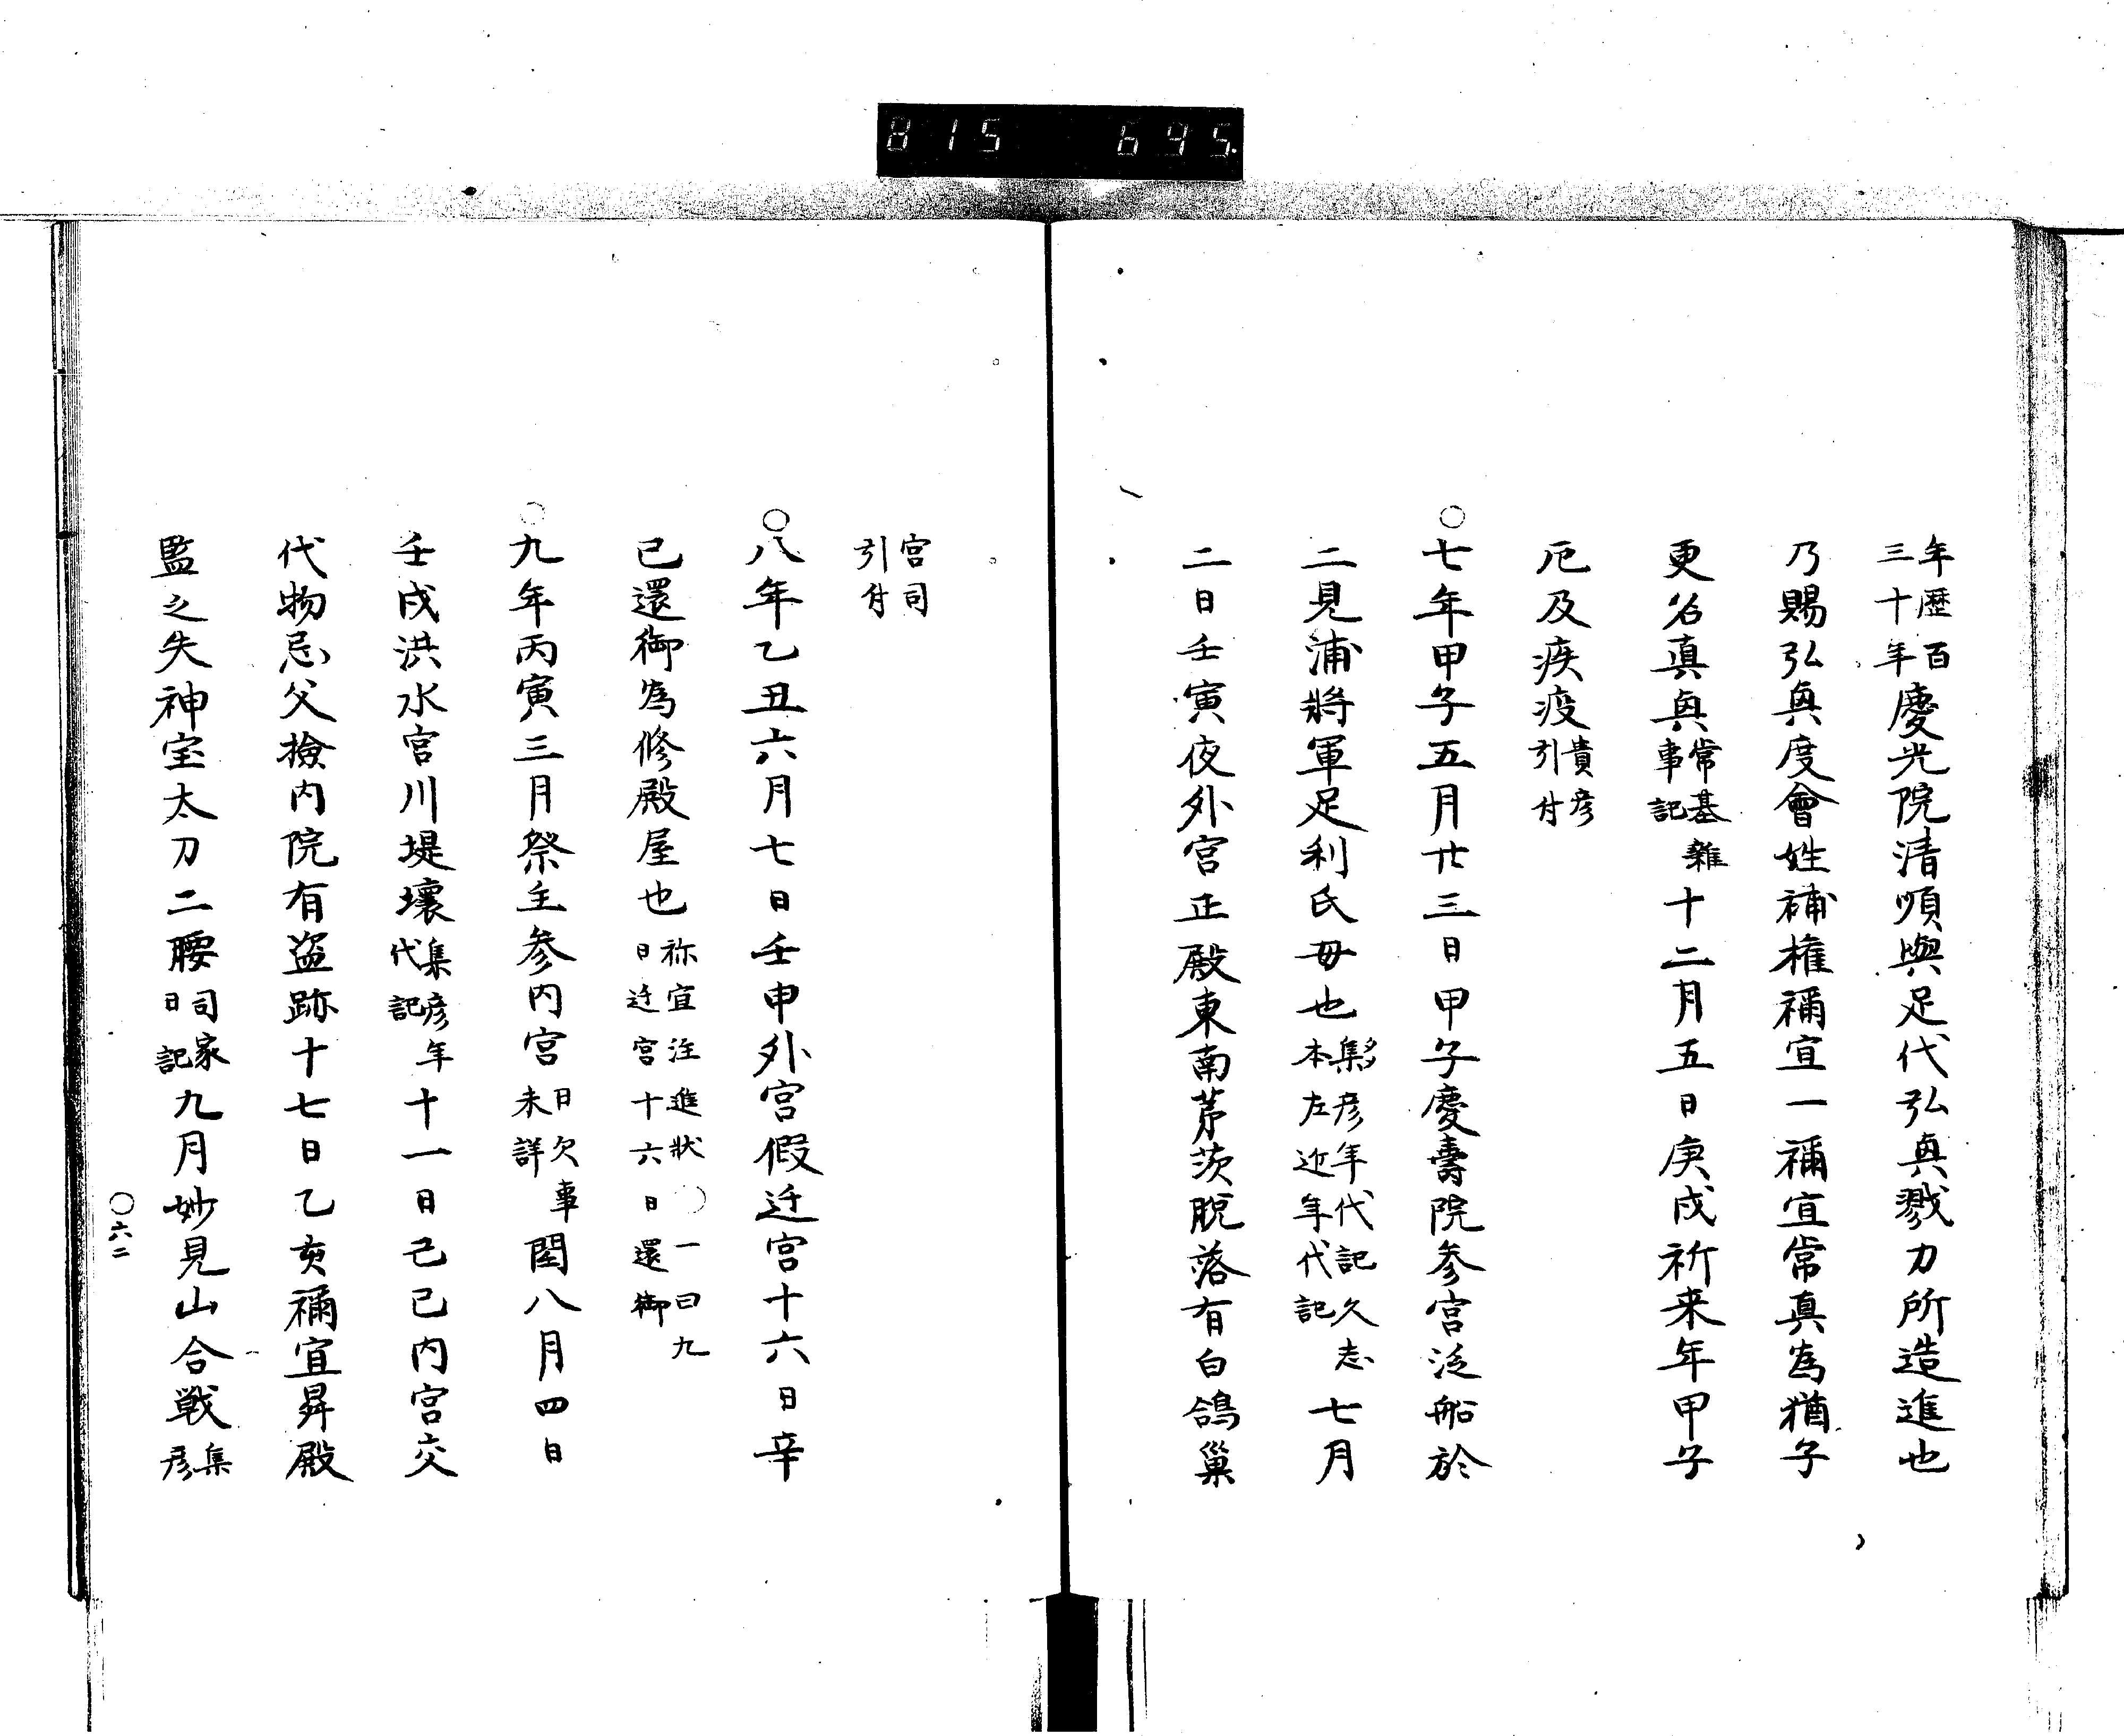 815 645.
年歴百
三十年慶光院清順與足代弘眞戮力所造進也
乃賜弘眞度會姓補権禰宜一禰宜常真為猶子
更名眞眞常基雜
事記十二月五日庚戌祈来年甲子
厄及疾疫貴彦
引付
○七年甲子五月廿三日甲子慶壽院参宮泛船於
二見浦將軍足利氏母也集彦年代記久志
本左近年代記七月
二日壬寅夜外宮正殿東南茅茨脫落有白鴿巢
宮司
引付
○八年乙丑六月七日壬申外宮假迁宮十六日辛
巳還御為修殿屋也祢宜注進狀○一曰九
日迁宮十六日還御
○九年丙寅三月祭主参内宮日欠事
未詳閏八月四日
壬戌洪水宮川堤壞集彦年
代記十一日己巳内宮交
代物忌父撿内院有盜跡十七日乙亥禰宜昇殿
監之失神宝太刀二腰司家
日記九月妙見山合戦集
彦
○六二